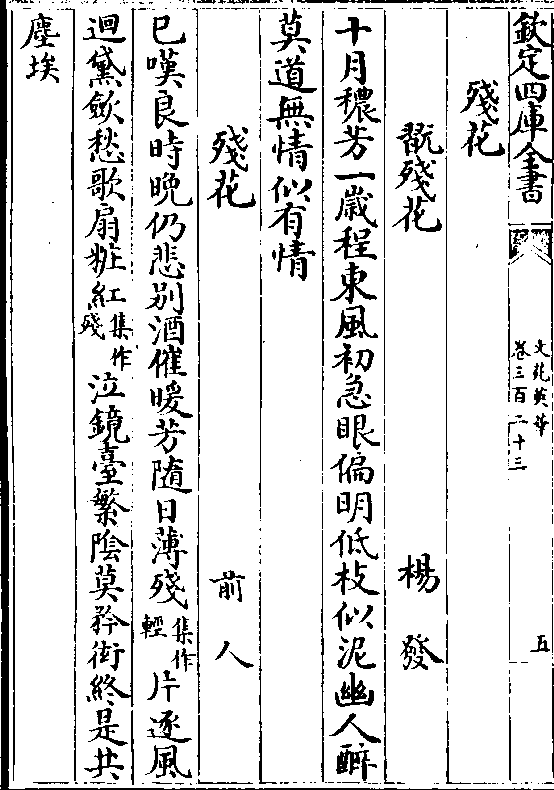 欽定四庫全書
文苑英華
卷三百二十三
五
殘花
翫殘花
楊發
十月穠芳一歲程東風初急眼偏明低枝似泥幽人醉
莫道無情似有情
殘花
前人
已嘆良時晚仍悲别酒催暖芳隨日薄殘集作輕片逐風
迴黛斂愁歌扇粧紅集作殘泣鏡臺繁陰莫矜衒終是共
塵埃